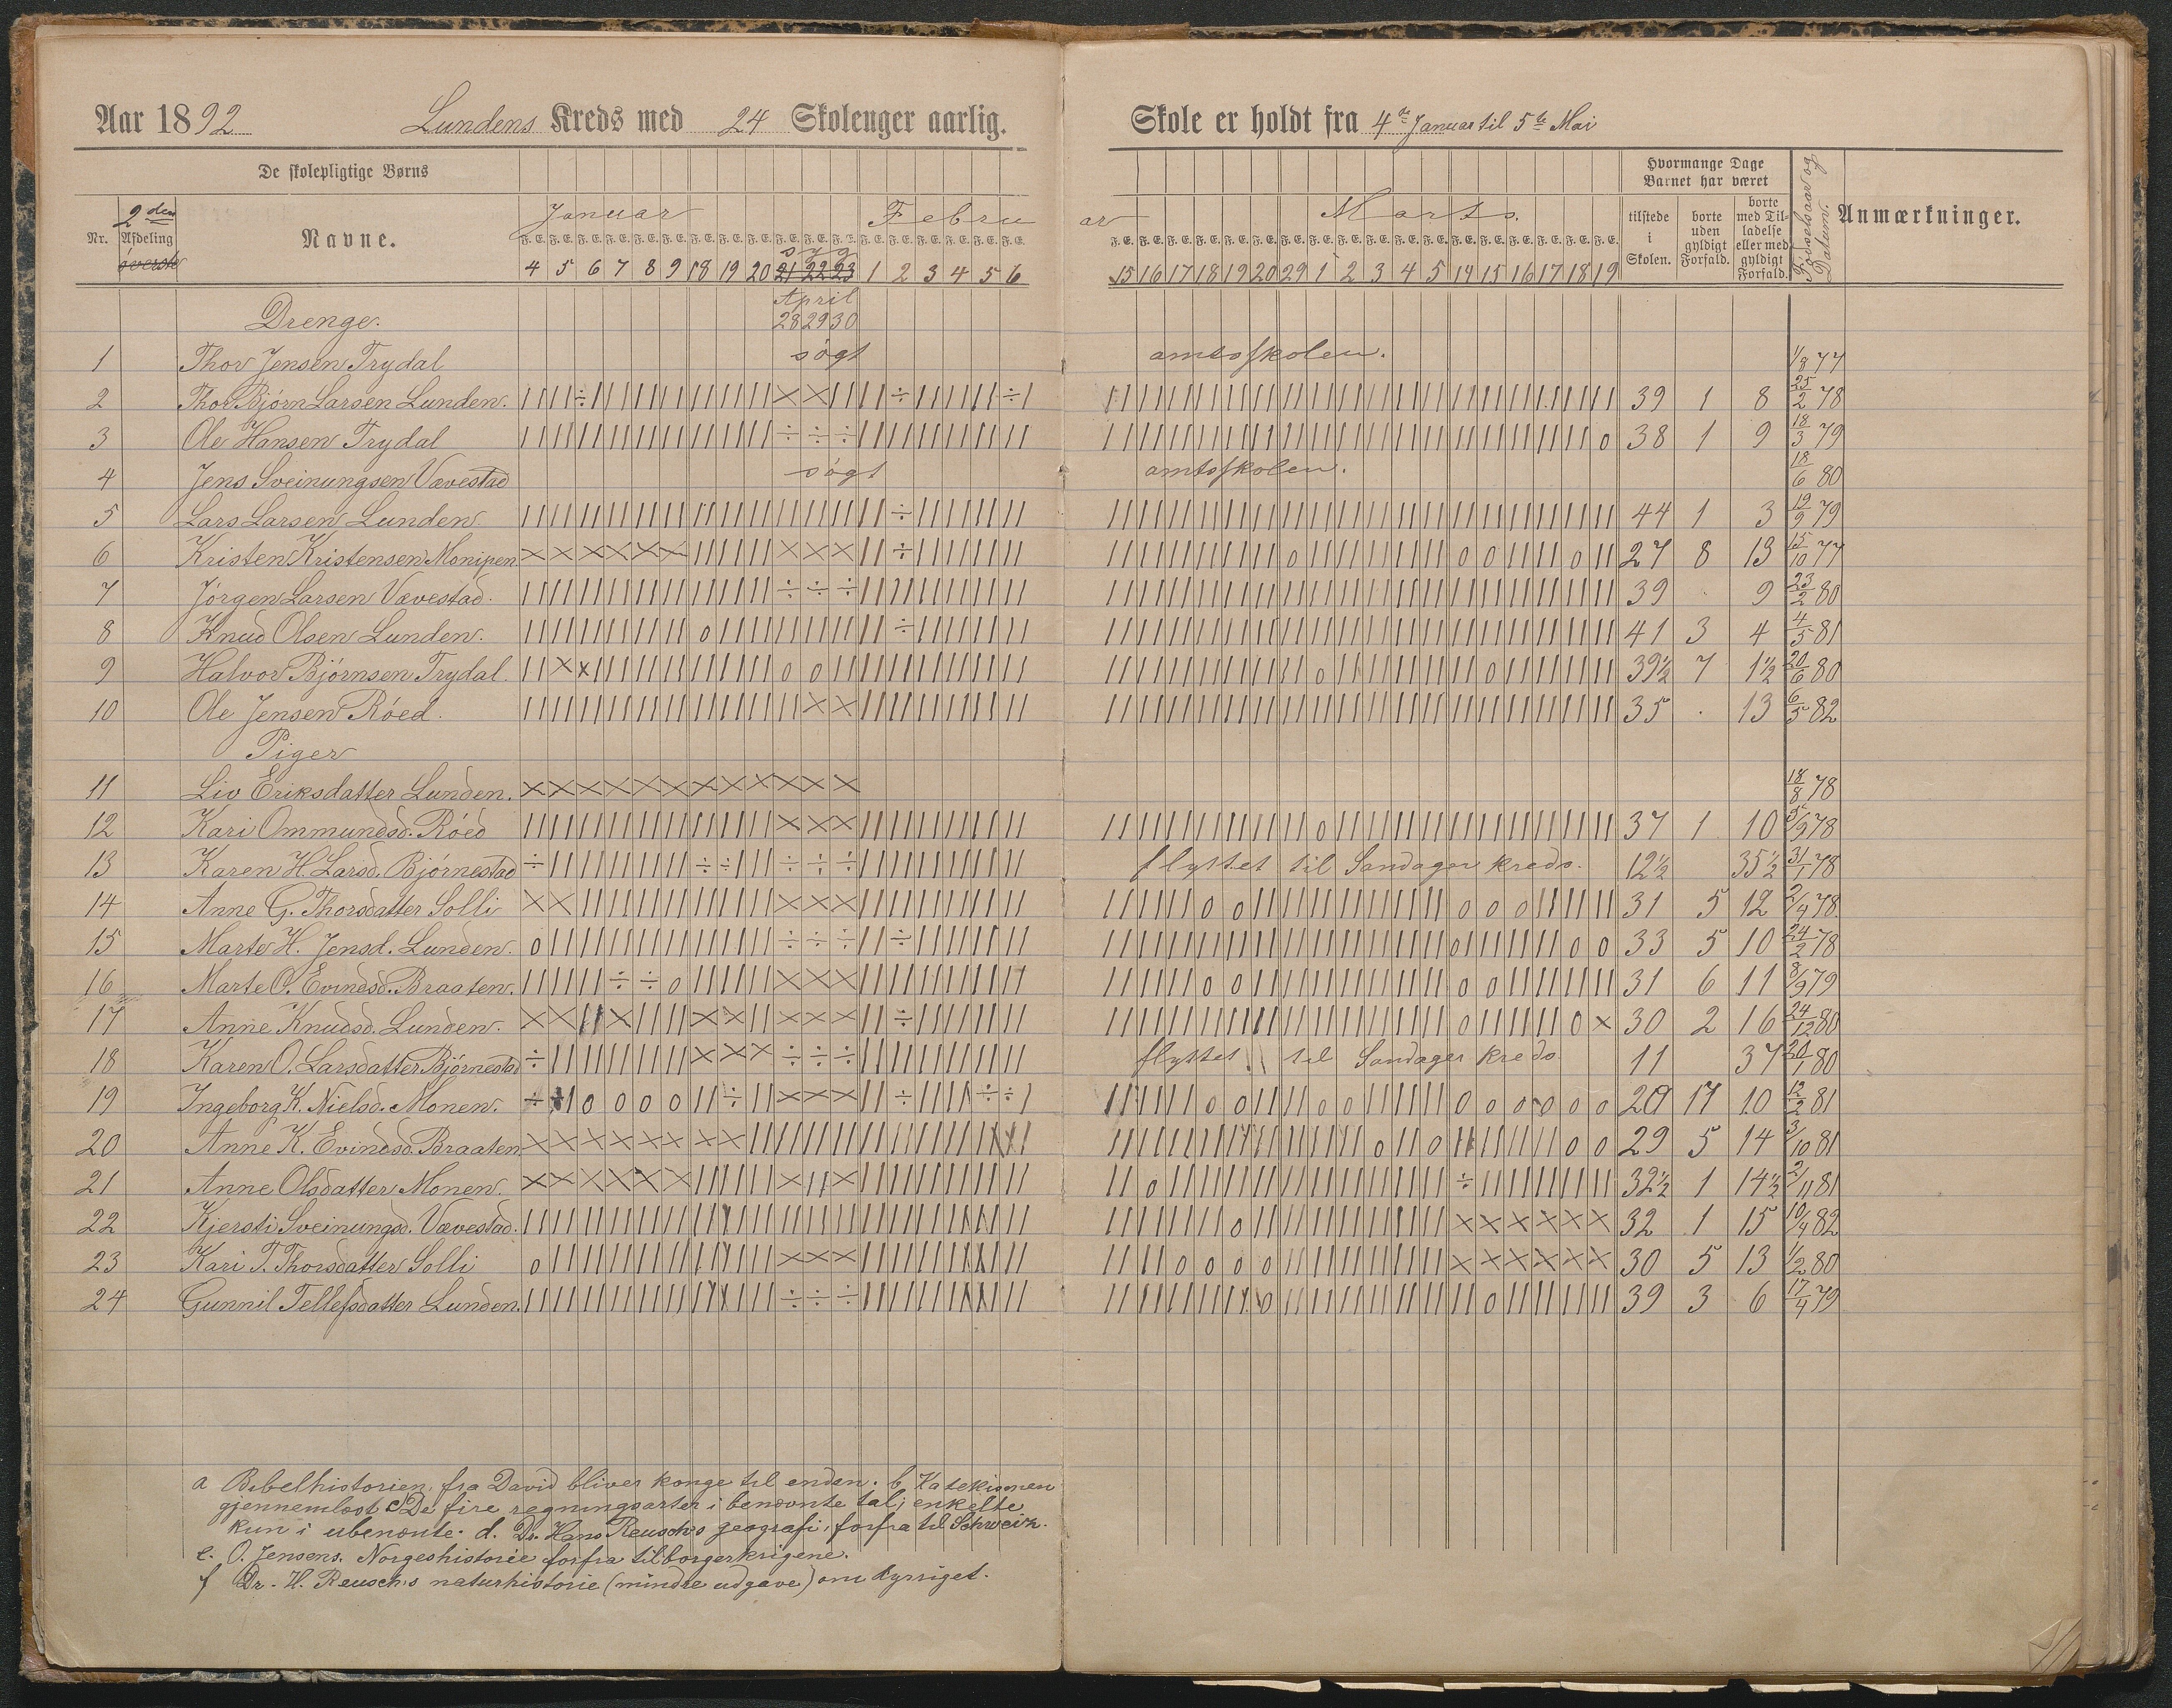 Aar 1892 Lundens Kreds med 24 Skolenger aarlig. Skole er holdt fra 4de Januar til 5te Mai
De skolepligtige Børns
Hvormange Dage Barnet har været
Nr. 2den Afdeling øverste Navne. Januar Febru ar Marts. tilstede i Skolen. borte uden gyldigt Forfald. borte med Tilladelse eller med gyldigt Forfald. Fødselsaar og Datum. Anmærkninger.
F. E. F. E. F. E. F. E. F. E. F. E. F. E. F. E. F. E. F. E. F. E. F. E. F. E. F. E. F. E. F. E. F. E. F. E.
syg
4 5 6 7 8 9 18 19 20 21 22 23 1 2 3 4 5 6 15 16 17 18 19 20 29 1 2 3 4 5 14 15 16 17 18 19
April
Drenge. 28 29 30
1 Thor Jensen Trydal søgt amtsskolen. 1/8 77
2 Thor Bjørn Larsen Lunden. 39 1 8 25/2 78
3 Ole Hansen Trydal 38 1 9 18/3 79
4 Jens Sveinungsen Vævestad søgt amtsskolen. 18/6 80
5 Lars Larsen Lunden 44 1 3 19/9 79
6 Kristen Kristensen Monipen 27 8 13 15/10 77
7 Jørgen Larsen Vævestad. 39 . 9 23/2 80
8 Knud Olsen Lunden. 41 3 4 4/5 81
9 Halvor Bjørnsen Trydal. 39½ 7 1½ 20/6 80
10 Ole Jensen Røed. 35 . 13 6/5 82
Piger
11 Liv Eriksdatter Lunden. 18/8 78
12 Kari Ommundsd. Røed 37 1 10 5/9 78
13 Karen H. Larsd. Bjørnestad flyttet til Sandager kreds. 12½ 35½ 31/1 78
14 Anne G. Thorsdatter Solli 31 5 12 2/4 78.
15 Marte H. Jensd. Lunden. 33 5 10 24/2 78
16 Marte O. Evindsd. Braaten. 31 6 11 8/9 79
17 Anne Knudsd. Lunden. 30 2 16 24/12 80
18 Karen O. Larsdatter Bjørnestad flyttet til Sandager kreds 11 37 20/1 80
19 Ingeborg K. Nielsd. Monen. 20 17 10 12/2 81
20 Anne K. Evindsd. Braaten 29 5 14 3/10 81
21 Anne Olsdatter Monen. 32½ 1 14½ 2/11 81
22 Kjersti Sveinungsd. Vævestad. 32 1 15 10/4 82
23 Kari T. Thorsdatter Solli 30 5 13 1/2 80
24 Gunnil Tellefsdatter Lunden. 39 3 6 17/4 79
a Bibelhistorien, fra David bliver konge til enden. b, Katekismen
gjennemløst c De fire regningsarter i benævnte tal; enkelte
kun i ubenævnte. d. Dr. Hans Reusch's geografi, forfra til Schweiz.
e. O. Jensens. Norgeshistorie forfra til borgerkrigene.
f Dr. H. Reusch's naturhistorie (mindre udgave) om dyrriget.